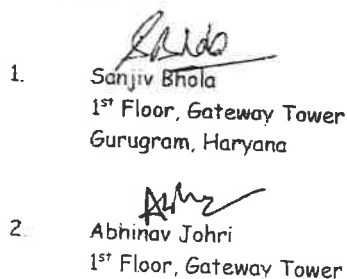 1. Sanjiv Bhola
1st Floor, Gateway Tower
Gurugram, Haryana
2. Abhinav Johri
1st Floor, Gateway Tower